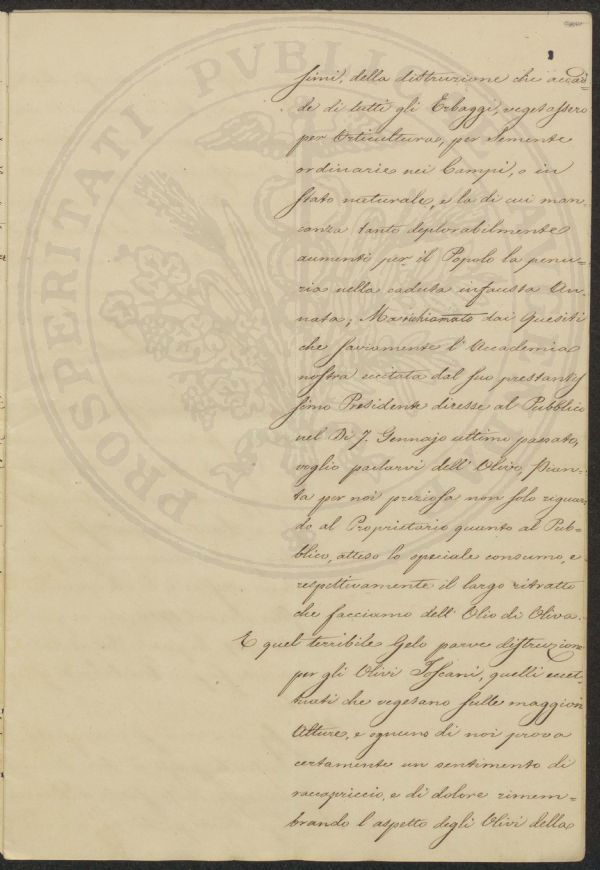 simi, della distruzione che accad=
de di tutti gli Erbaggi, vegetassero
per Orticultura, per Semente
ordinarie nei Campi, o in
stato naturale, e la di cui man=
canza tanto deplorabilmente
aumentò per il Popolo la penu=
ria nella caduta infausta An=
nata; Ma richiamato dai Quesiti
che saviamente l'Accademia
nostra eccitata dal suo prestantis
simo Presidente diresse al Pubblico
nel Dì 7. Gennajo ultimo passato,
voglio parlarvi dell'Olivo, Pian=
ta per noi preziosa non solo riguar
do al Proprietario quanto al Pub=
blico, atteso lo speciale consumo, e
respettivamente il largo ritratto
che facciamo dell'Olio di Oliva.
E quel terribile Gelo parve distruzione
per gli Olivi Toscani, quelli eccet=
tuati che vegetano sulle maggiori
Alture, e ognuno di noi prova
certamente un sentimento di
raccapriccio, e di dolore rimem=
brando l'aspetto degli Olivi della
PROSPERITATI PVBLICAE